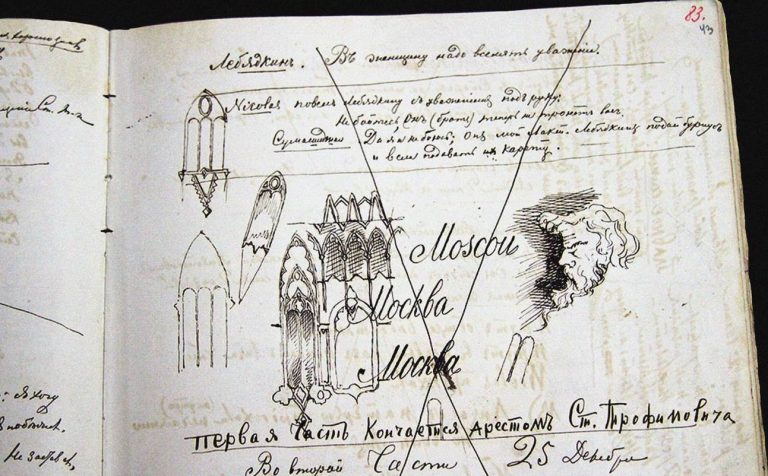 83.
43
Лебядкинъ. Въ женщину надо вселять уваженіе.
Nicolas повелъ Лебядкину съ уваженіемъ подъ руку:
Не бойтесь, онъ (братъ) теперь не тронетъ васъ.
Да я и не боюсь; онъ мой лакей. Лебядкинъ подай бурнусъ
и велѣлъ подавать карету.
Moscou
Москва
Москва
Первая часть кончается арестомъ Ст. Трофимовича
Во второй части 25 Декабря
: Я хочу